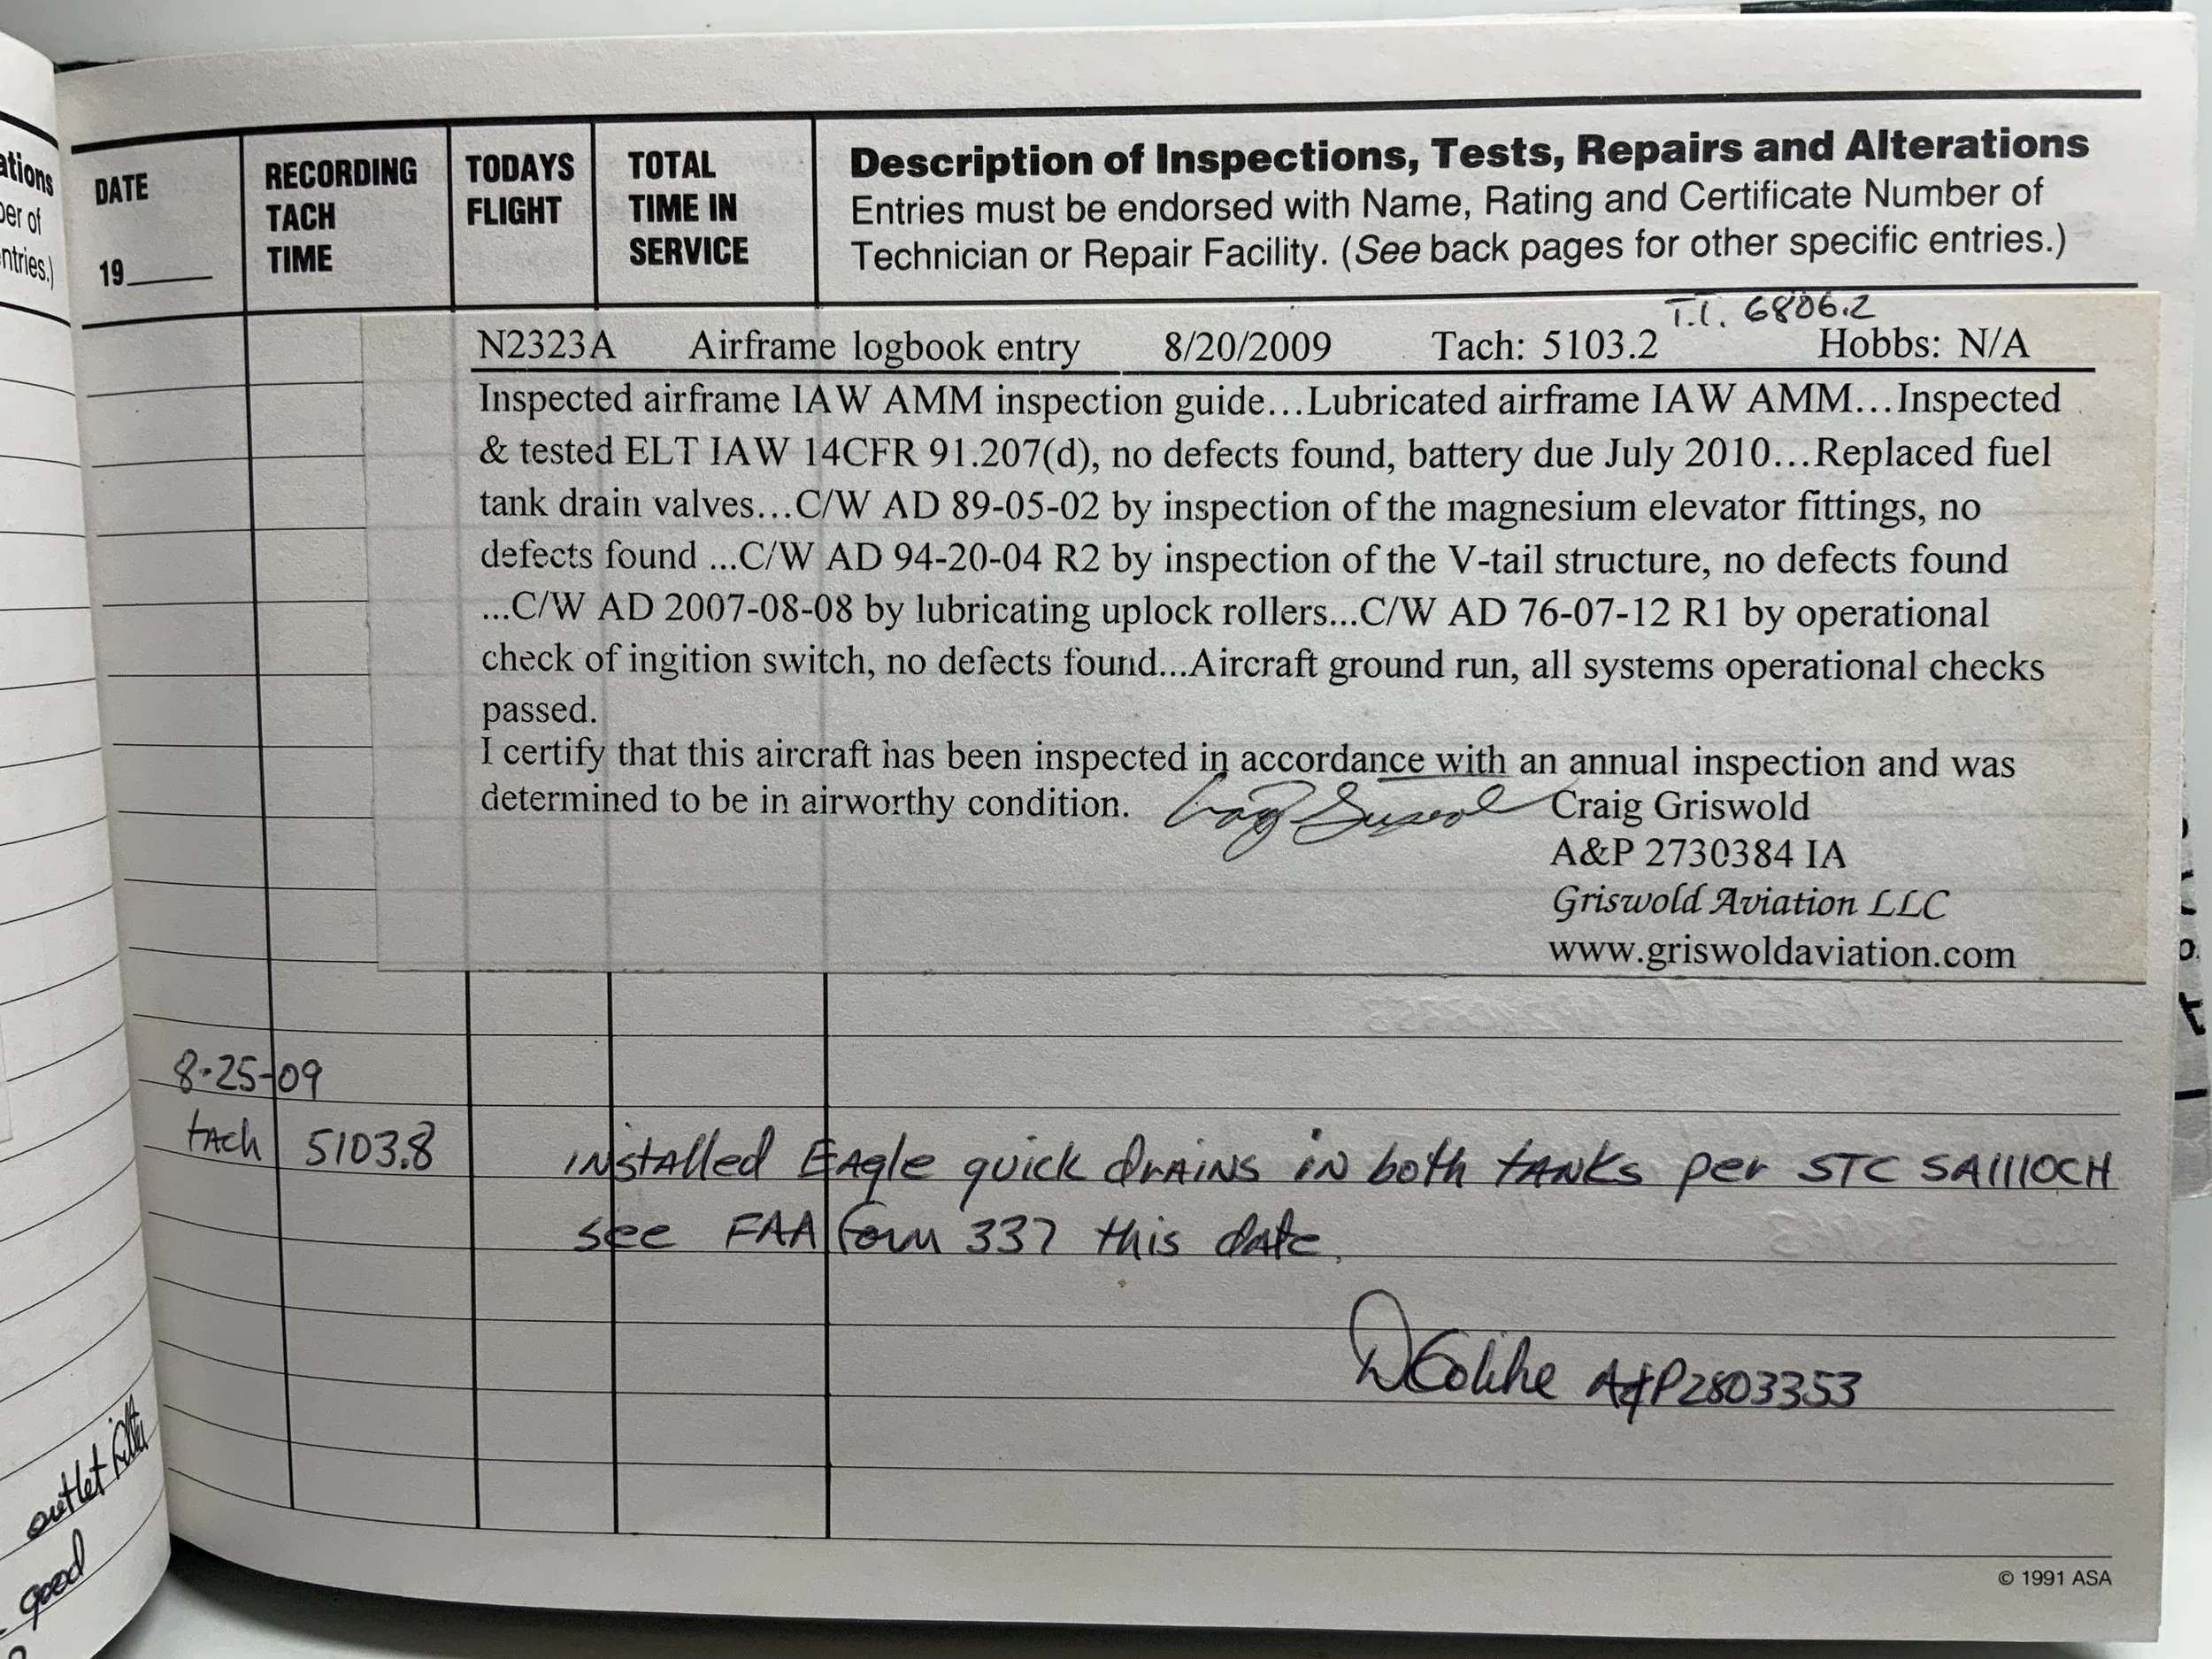 ations
ber of
ntries.)
DATE
19____
RECORDING
TACH
TIME
TODAYS
FLIGHT
TOTAL
TIME IN
SERVICE
Description of Inspections, Tests, Repairs and Alterations
Entries must be endorsed with Name, Rating and Certificate Number of
Technician or Repair Facility. (See back pages for other specific entries.)
T.T. 6806.2
N2323A Airframe logbook entry 8/20/2009 Tach: 5103.2 Hobbs: N/A
Inspected airframe IAW AMM inspection guide...Lubricated airframe IAW AMM...Inspected
& tested ELT IAW 14CFR 91.207(d), no defects found, battery due July 2010...Replaced fuel
tank drain valves...C/W AD 89-05-02 by inspection of the magnesium elevator fittings, no
defects found ...C/W AD 94-20-04 R2 by inspection of the V-tail structure, no defects found
...C/W AD 2007-08-08 by lubricating uplock rollers...C/W AD 76-07-12 R1 by operational
check of ingition switch, no defects found...Aircraft ground run, all systems operational checks
passed.
I certify that this aircraft has been inspected in accordance with an annual inspection and was
determined to be in airworthy condition. Craig Griswold
A&P 2730384 IA
Griswold Aviation LLC
www.griswoldaviation.com
8-25-09
tach 5103.8 installed Eagle quick drains in both tanks per STC SA1110CH
see FAA form 337 this date.
A&P 2803353
outlet
good
© 1991 ASA